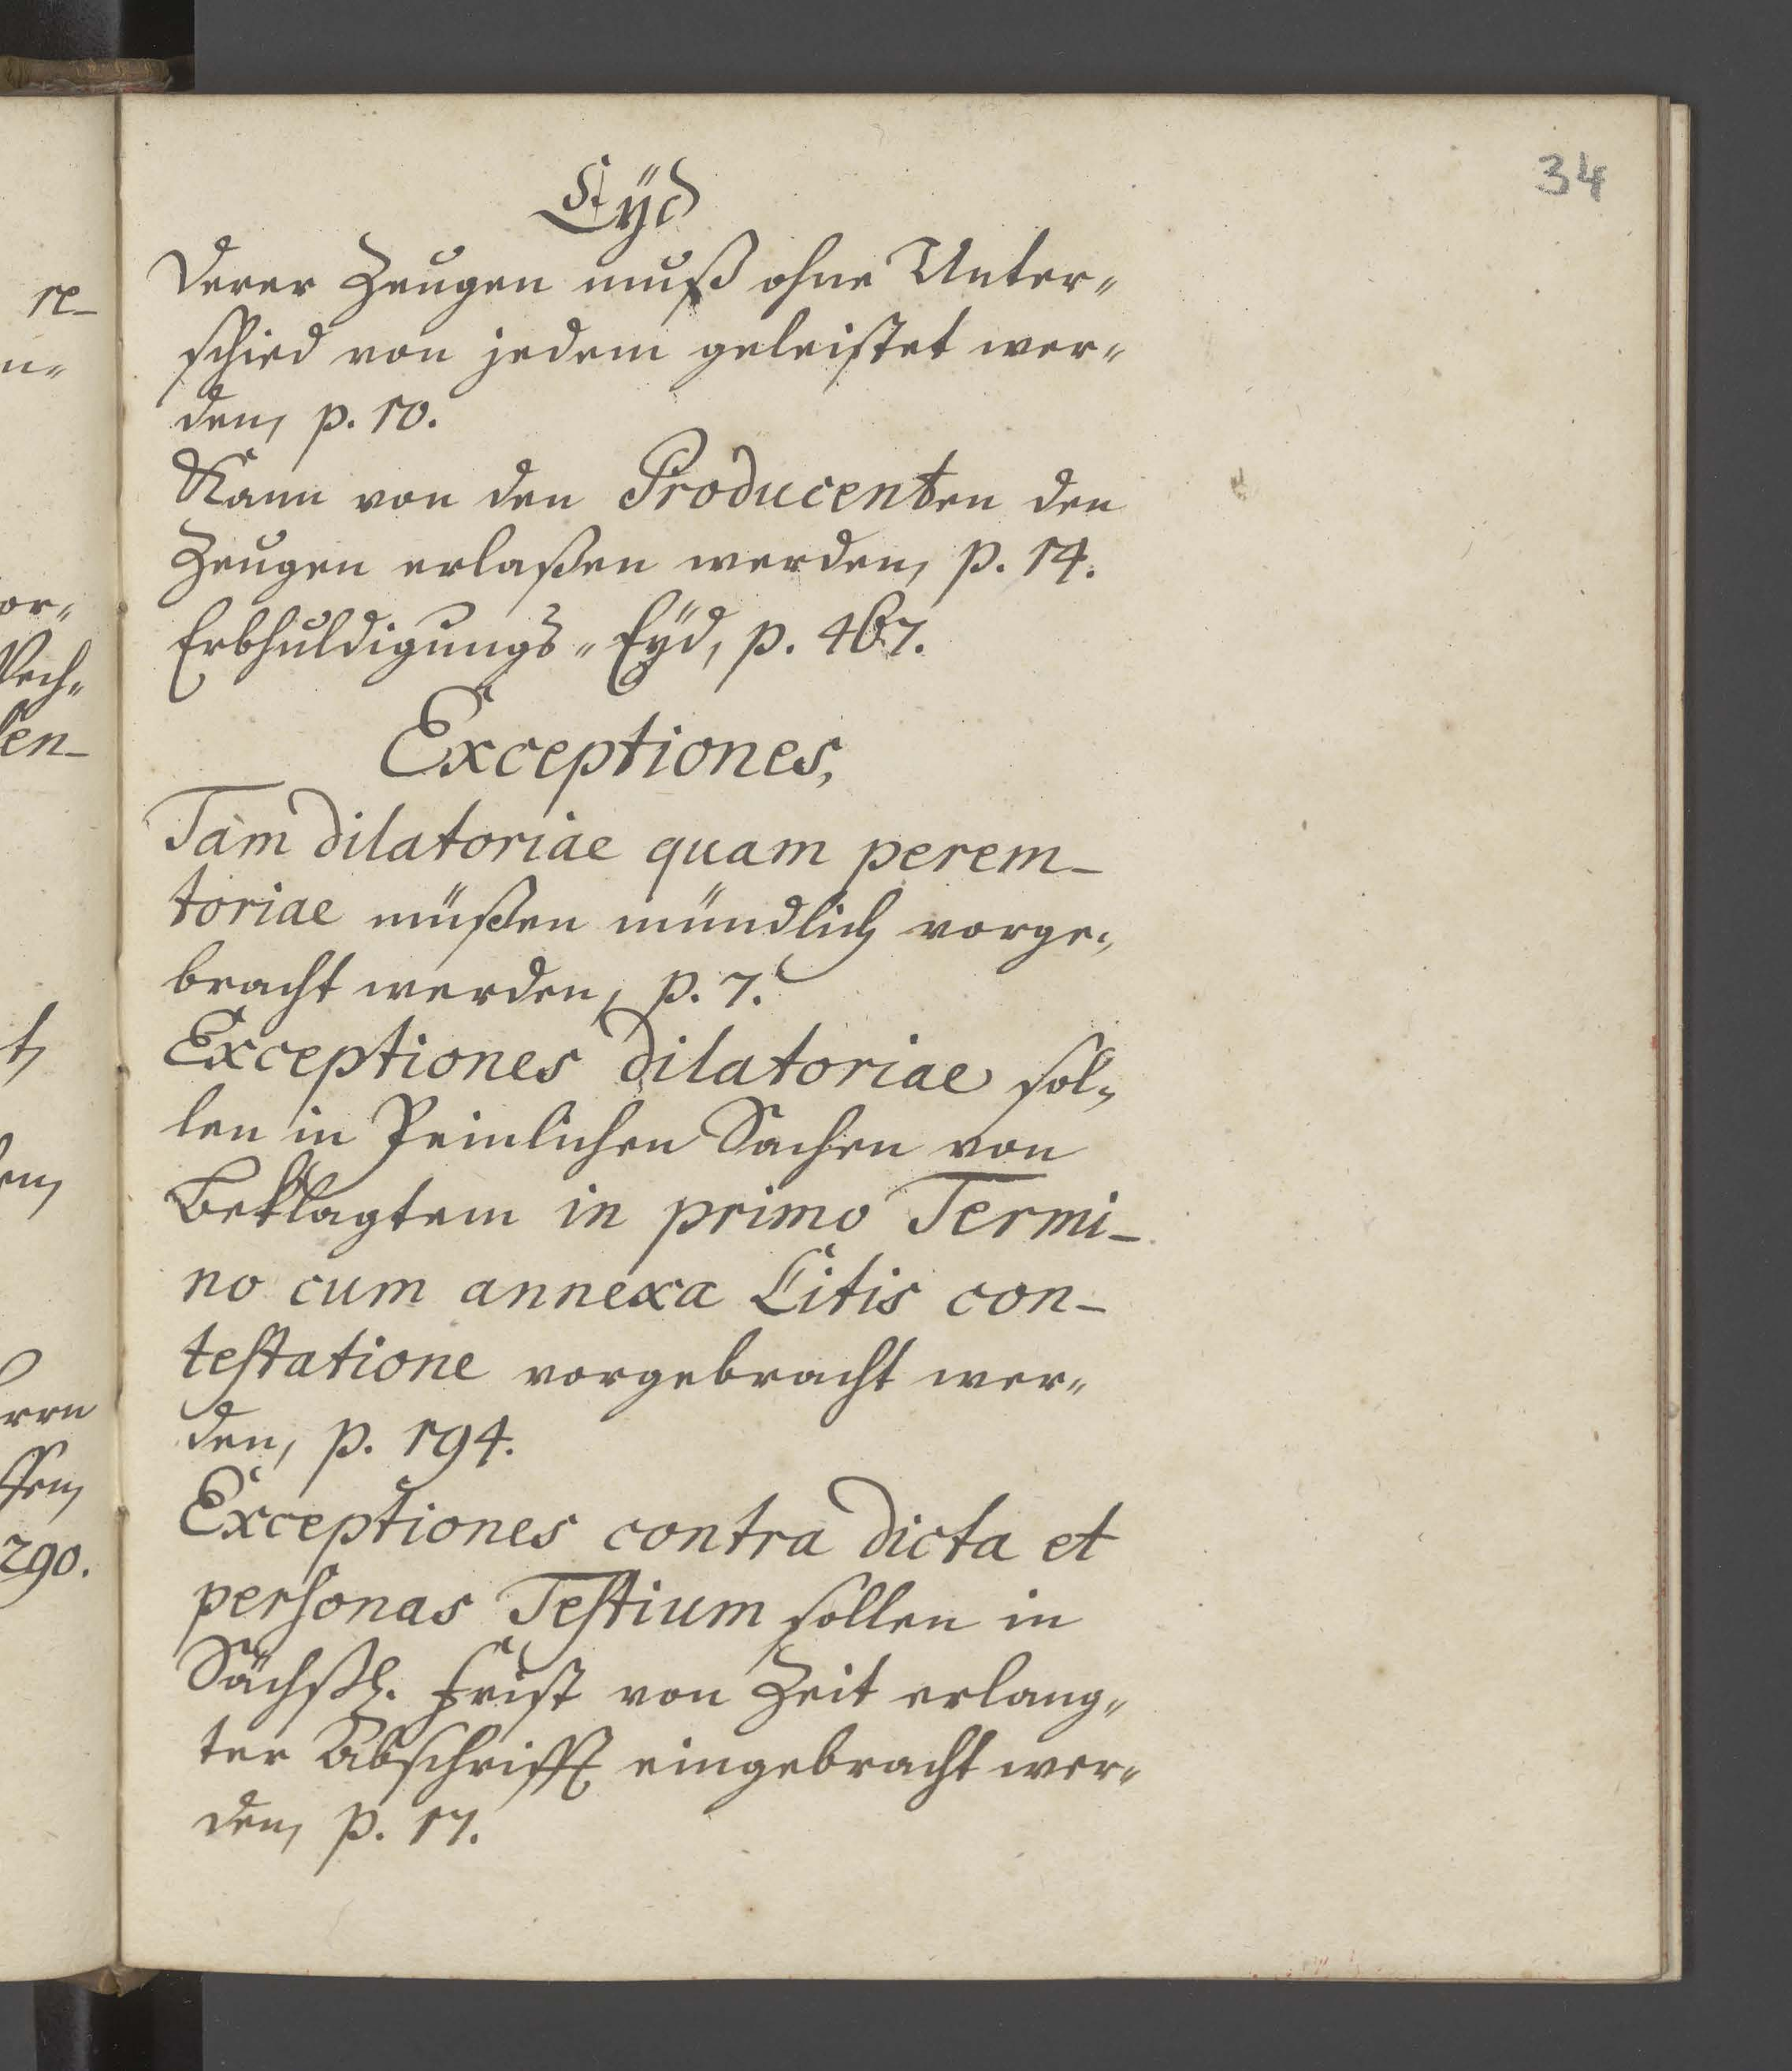 34
Eÿd
derer Zeugen muß ohne Unter„
schied von jedem geleistet wer„
den, p. 10.
Kann von den Producenten den
Zeugen erlaßen werden, p. 14.
Erbhuldigungs„Eÿd, p. 467.
Exceptiones,
Tàm dilatoriae quam perem-
toriae müßen mündlich vorge„
bracht werden, p. 7.
Exceptiones dilatoriae sol„
len in Peinlichen Sachen von
Beklagtem in primo Termi-
no cum annexa Litis con-
testatione vorgebracht wer„
den, p. 194.
Exceptiones contra dicta et
personas Testium sollen in
Sächßl. Frist von Zeit erlang„
ter Abschrifft eingebracht wer„
den, p. 17.